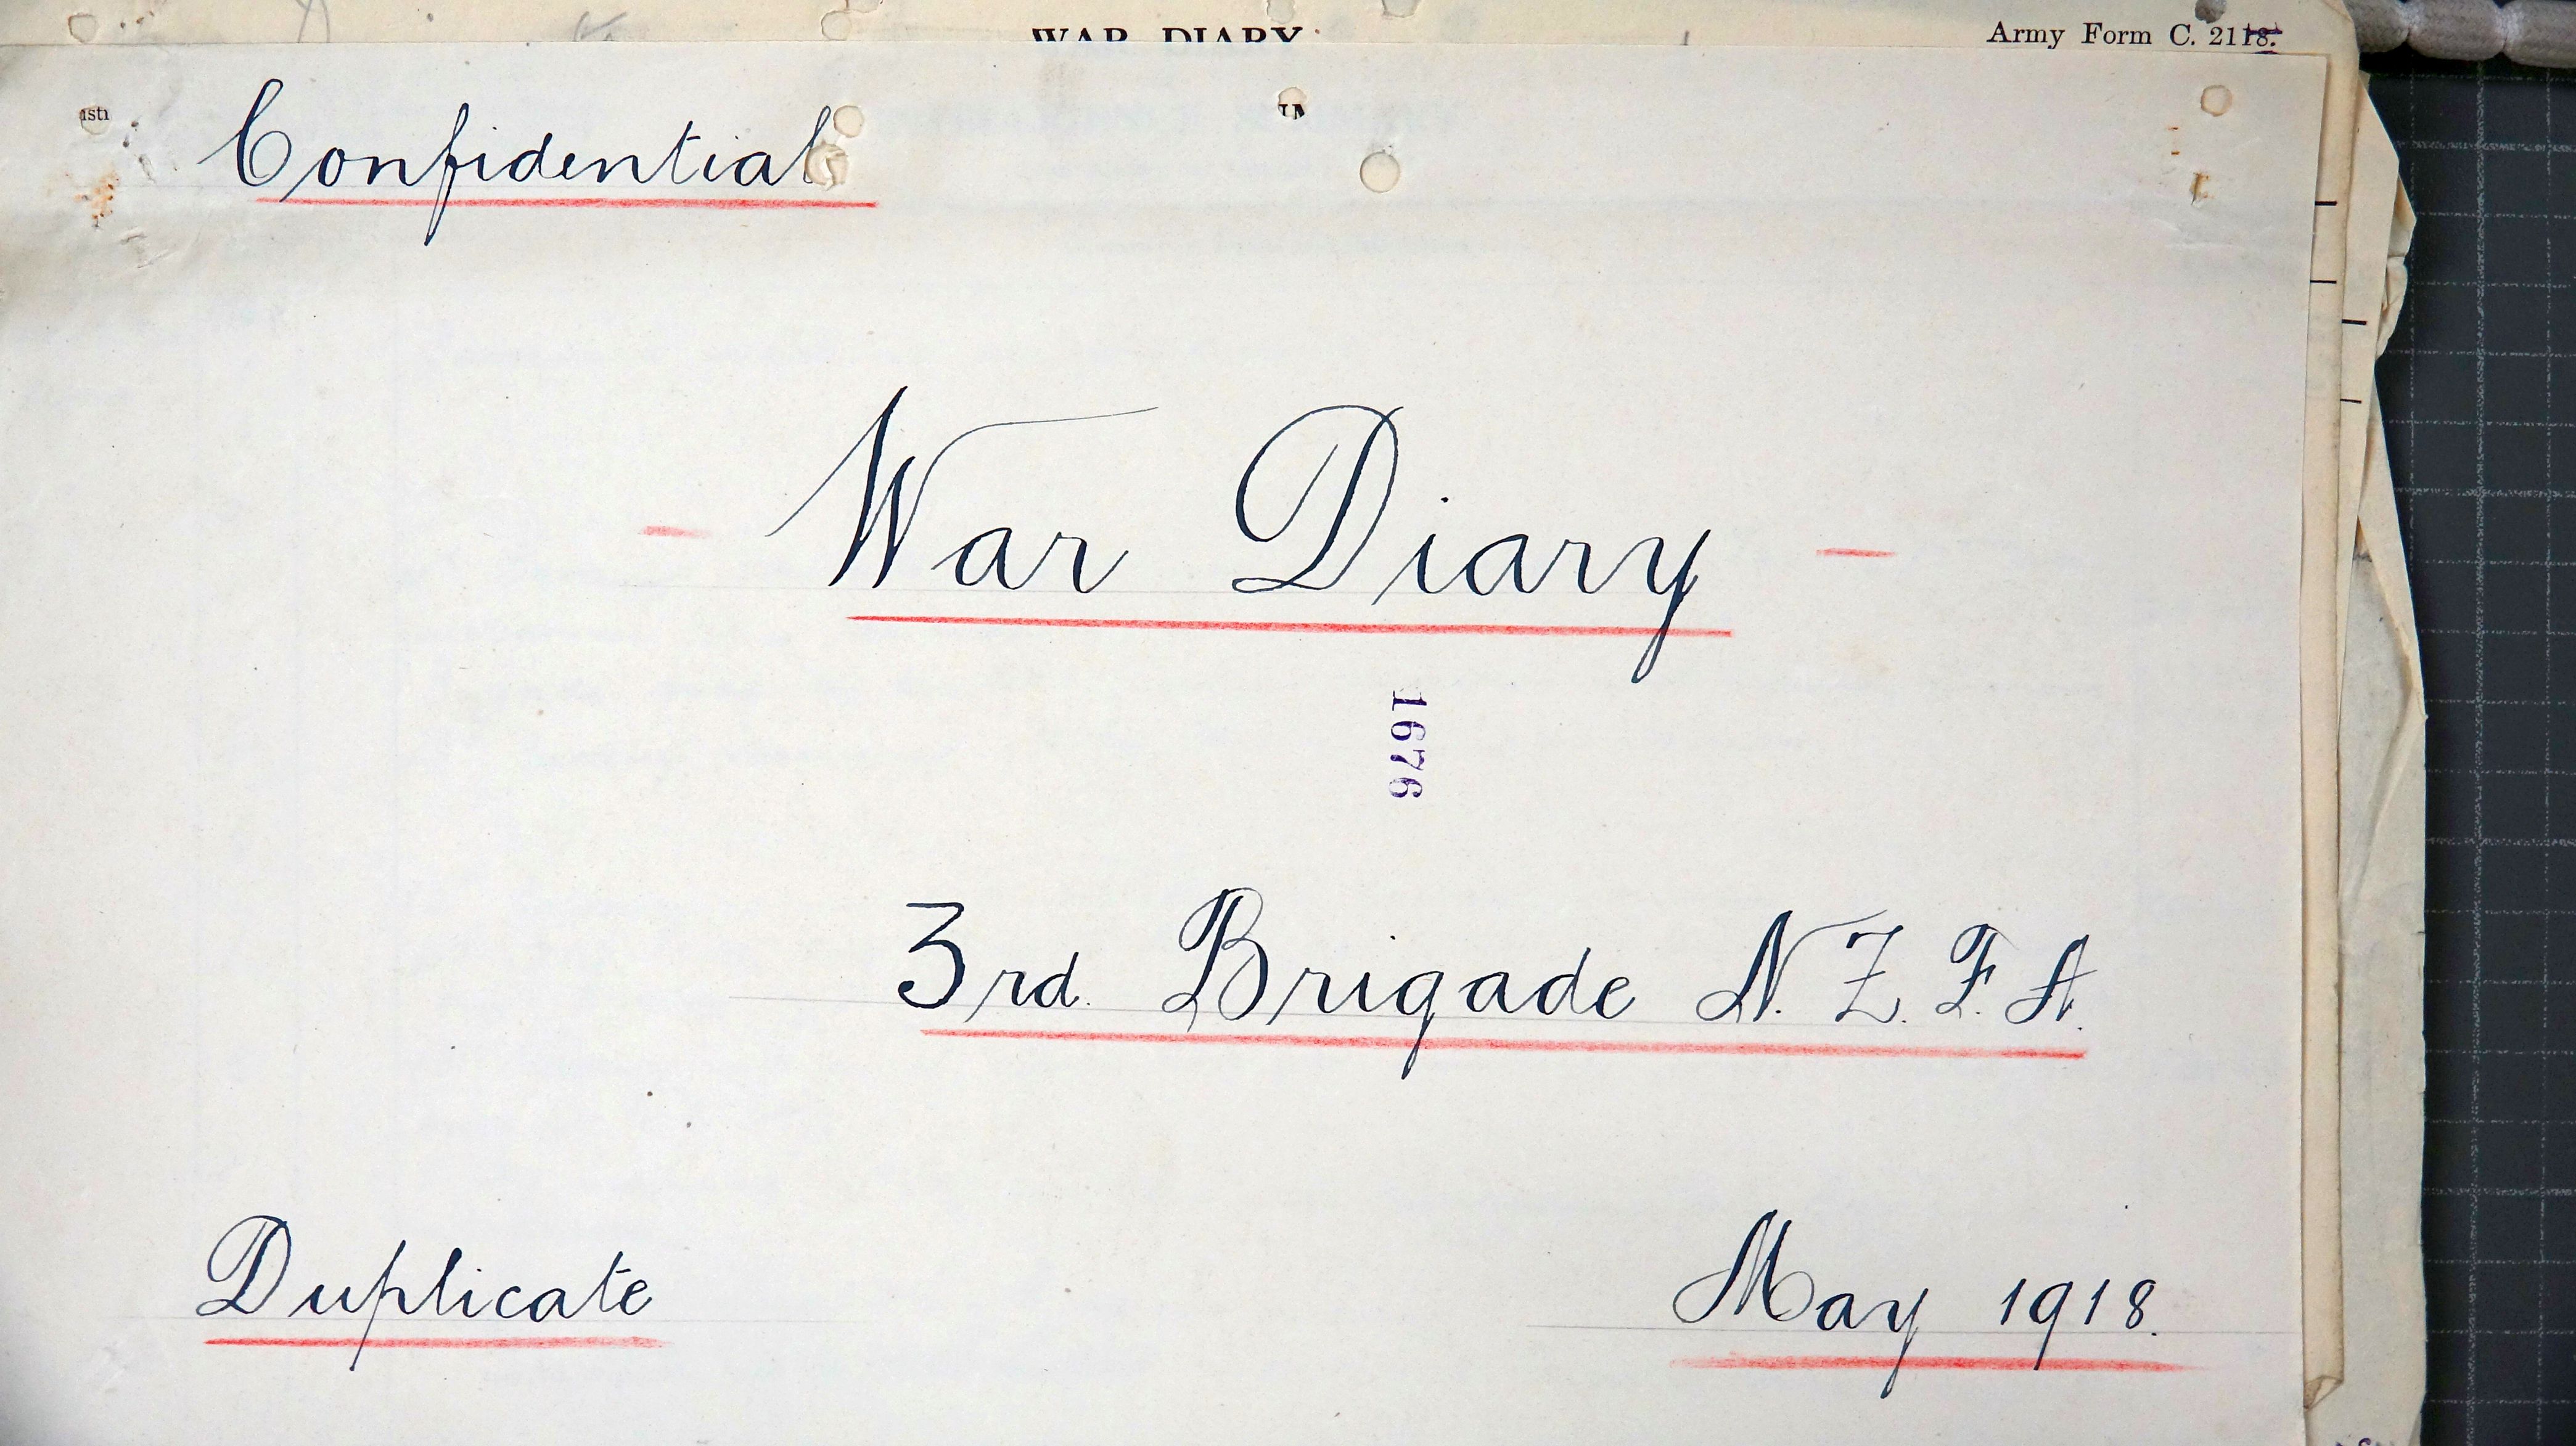 WAR DIARY.
Army Form C. 2118.
Confidential
- War Diary -
1676
3rd. Brigade N.Z.F.A.
Duplicate
May 1918.